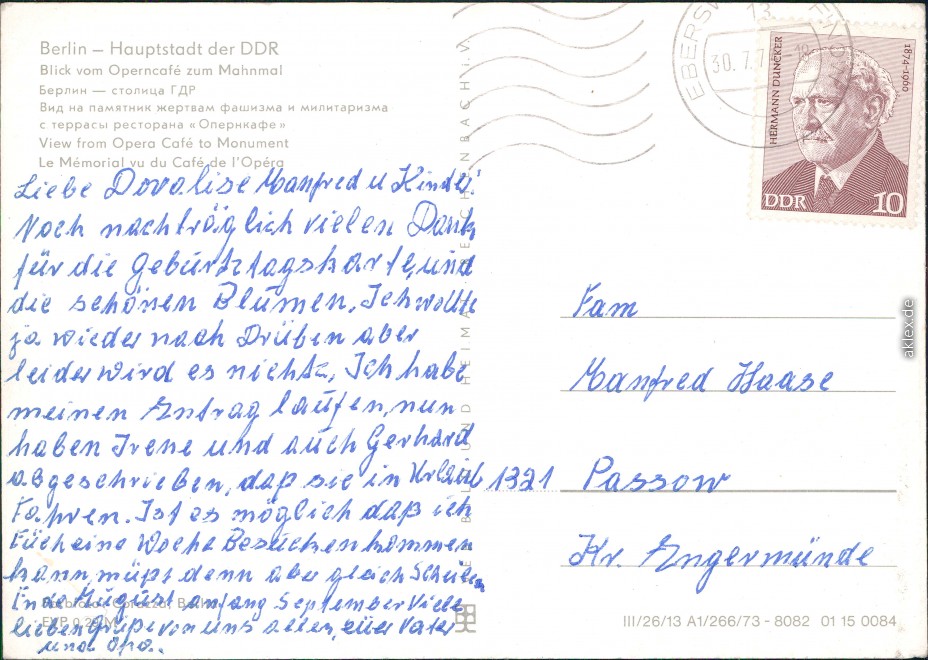 Berlin – Hauptstadt der DDR
Blick vom Operncafé zum Mahnmal
Берлин — столица ГДР
Вид на памятник жертвам фашизма и милитаризма
с террасы ресторана «Опернкафе»
View from Opera Café to Monument
Le Mémorial vu du Café de l'Opéra
Liebe Manfred u Kinder!
Noch nachträglich vielen Dank
für die Geburtztagskarte, und
die schönen Blumen, Ich wollte
ja wieder nach Drüben aber
leider wird es nichtz, Ich habe
meinen Antrag laufen, nun
haben Irene und auch Gerhard
abgeschrieben, daß sie in Urlaub
Fahren. Ist es möglich daß ich
Füch eine Woche Besuchen kommen
kann, müßt denn aber gleich Schreiben
Ende August anfang September Viele
lieben grüße von uns allen, euer Vater
und Opa.
EVP 0,20 M
30.7.7
HERMANN DUNCKER
1874-1960
DDR
10
Fam
Manfred Haase
1321 Passow
Kr. Angermünde
III/26/13 A1/266/73 - 8082 01 15 0084
aklex.de